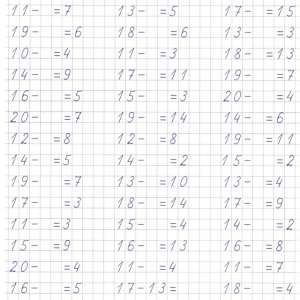 11- =7 13- =5 17- =15
19- =6 18- =6 13- =3
10- =4 11- =3 18- =13
14- =9 17- =11 19- =7
16- =5 15- =3 20- =4
20- =7 19- =14 14- =6
12- =8 12- =8 19- =11
14- =5 14- =2 15- =2
19- =7 13- =10 13- =4
17- =3 18- =14 17- =9
11- =3 15- =4 14- =2
15- =9 16- =13 16- =8
20- =4 11- =4 11- =7
16- =5 17-13= 18- =4